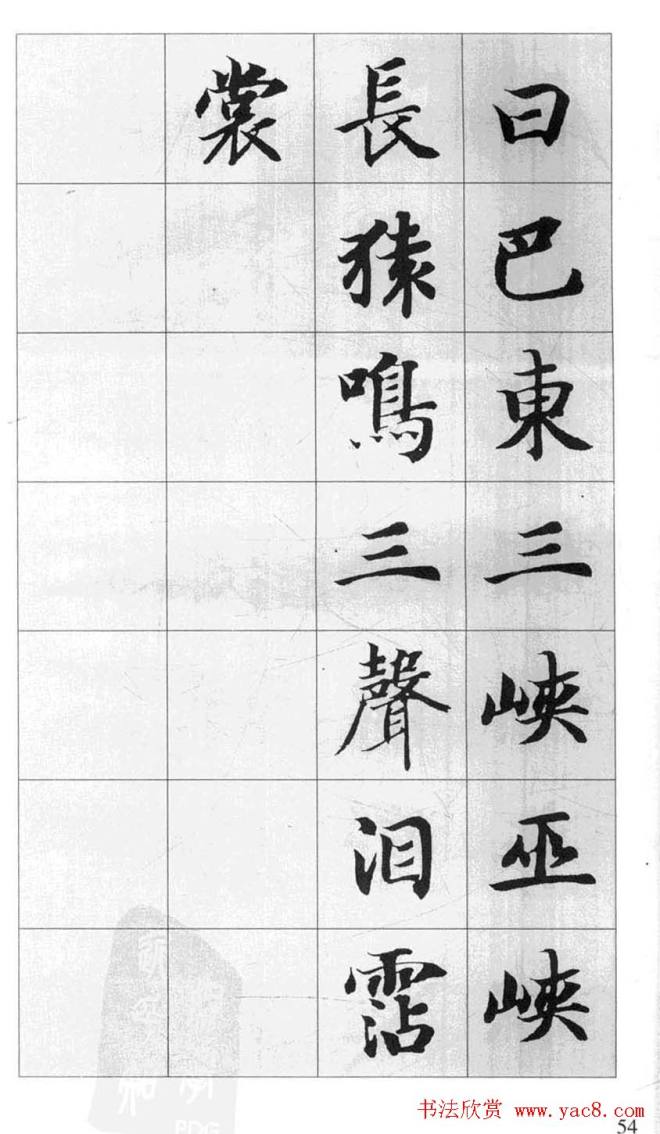 曰巴東三峽巫峽
長猿鳴三聲泪霑
裳
书法欣赏 www.yac8.com
54
PDG